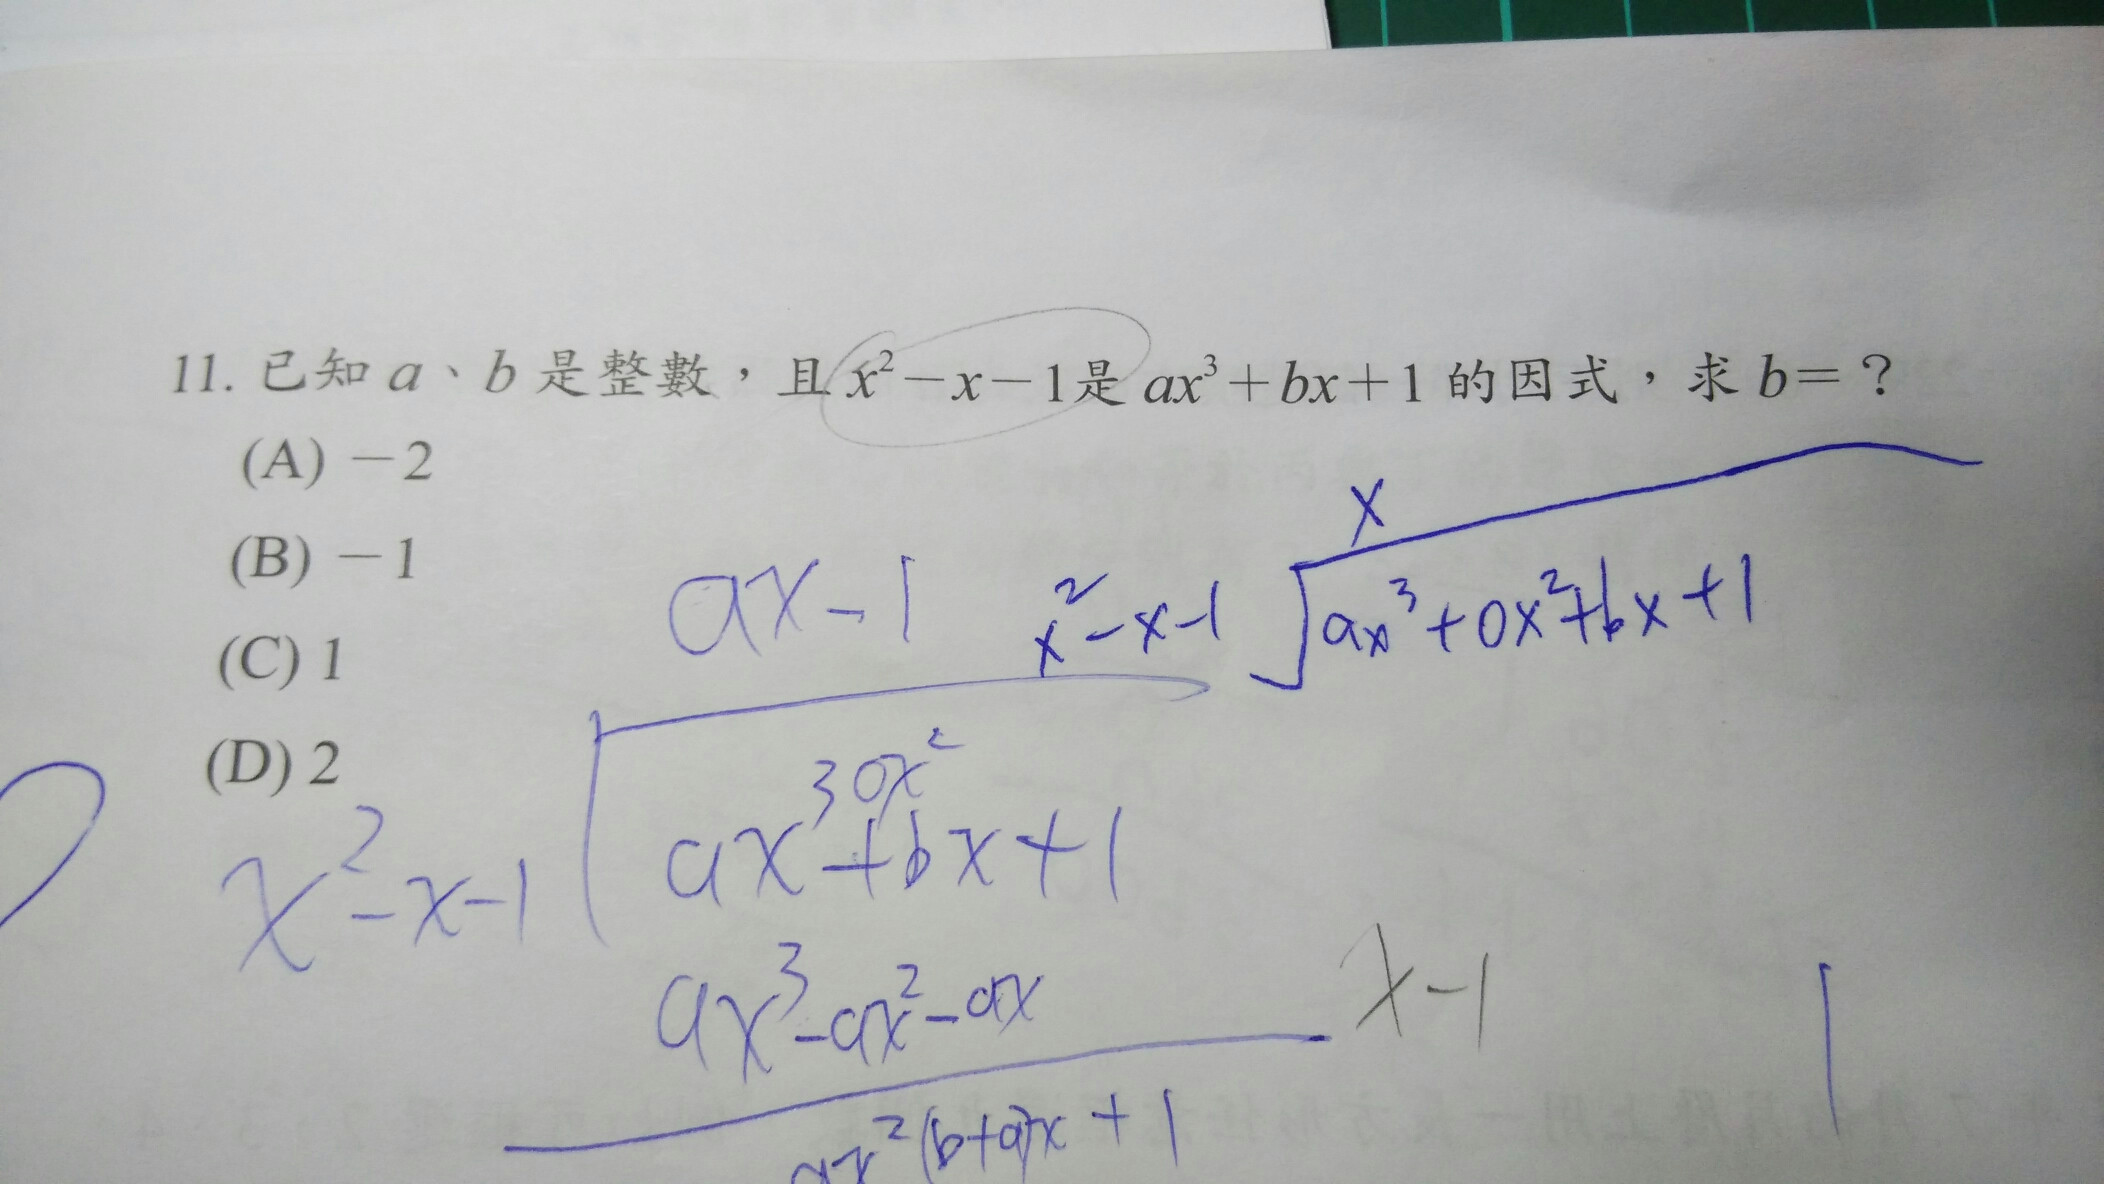 11. 已知 a、b 是整數，且 x²－x－1是 ax³＋bx＋1 的因式，求 b＝？
(A) －2
(B) －1
(C) 1
(D) 2
x
x²-x-1 ax³+0x²+bx+1
ax-1
0x²
x²-x-1 ax³+bx+1
ax³-ax²-ax
x-1
ax²(b+a)x+1